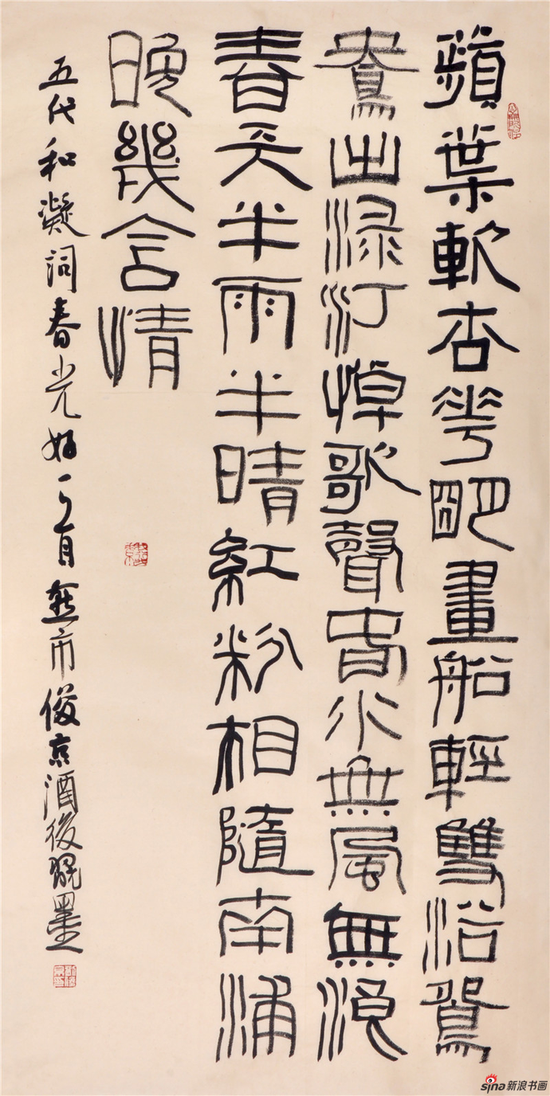 蘋葉軟杏花明畫船輕雙浴鴛
鴦出淥汀棹歌聲春水無風無浪
春天半雨半晴紅粉相隨南浦
晚幾含情
五代和凝詞春光好一首燕市俊京酒後戲墨
sina新浪书画